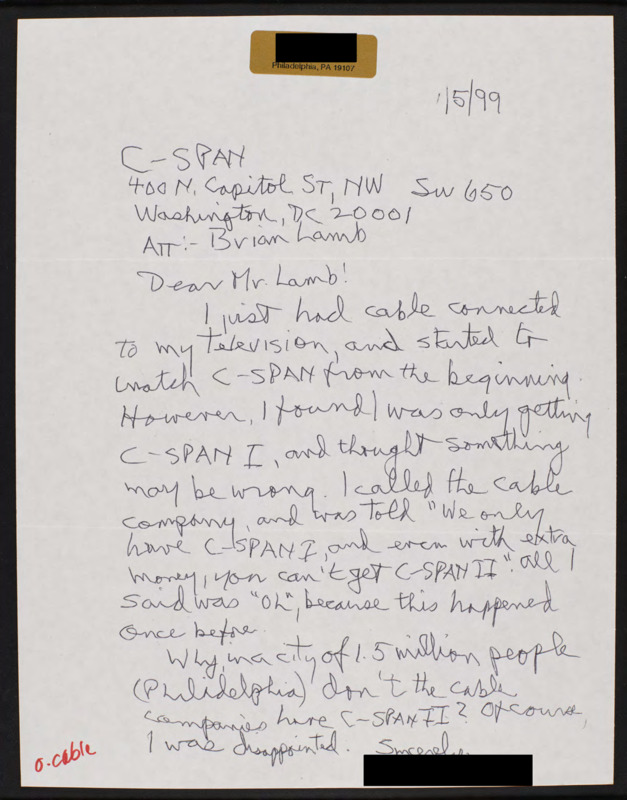 Philadelphia, PA 19107
1/5/99
C-SPAN
400 N. Capitol ST, NW SW 650
Washington, DC 20001
ATT:- Brian Lamb
Dear Mr. Lamb!
I just had cable connected
to my television, and started to
watch C-SPAN from the beginning.
However, I found I was only getting
C-SPAN I, and thought something
may be wrong. I called the cable
company, and was told "We only
have C-SPAN I, and even with extra
money, you can't get C-SPAN II". All I
said was "Oh", because this happened
once before.
Why in a city of 1.5 million people
(Philidelphia) don't the cable
companies have C-SPAN II? Of course,
I was disappointed. Sincerely,
o-cable